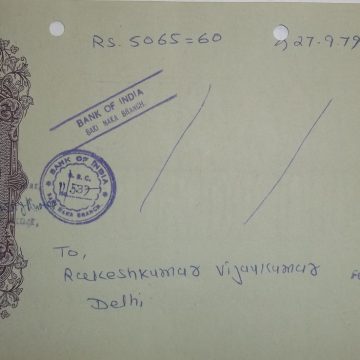 RS. 5065=60
27.9.79
BANK OF INDIA
BARI NAKA BRANCH.
BANK OF INDIA
S.C.
537
BARI NAKA BRANCH
To,
Rakeshkumar Vijaykumar
Delhi